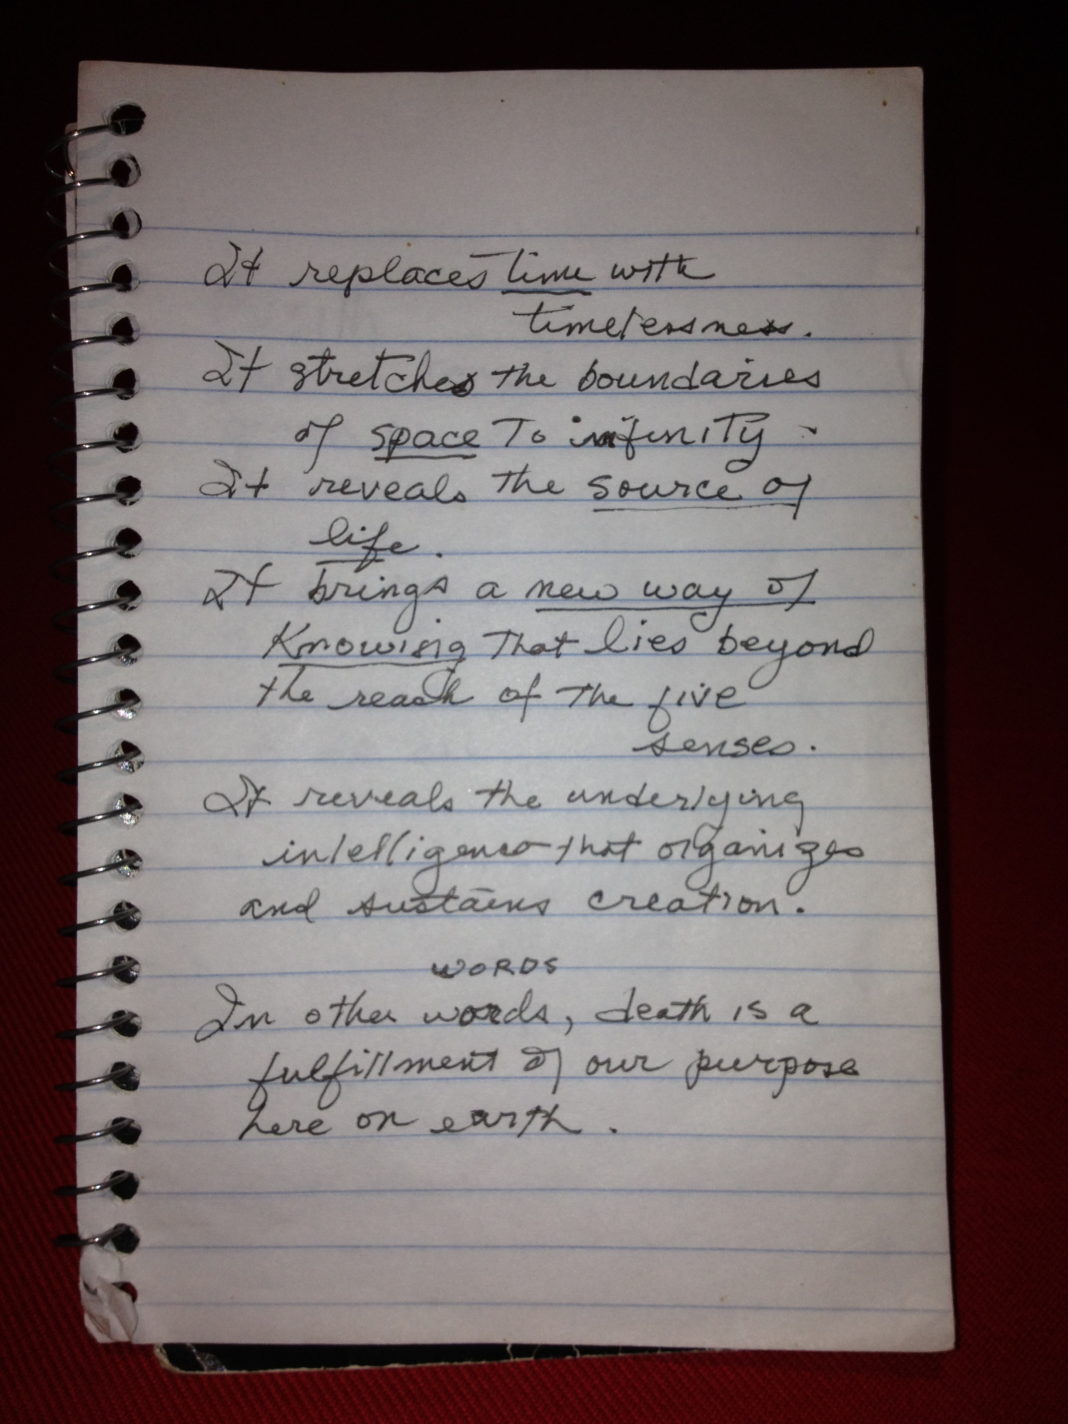 It replaces time with
timelessness.
It stretches the boundaries
of space To infinity -
It reveals the source of
life.
It brings a new way of
Knowing That lies beyond
the reach of The five
senses.
It reveals the underlying
intelligence that organizes
and sustains creation.
WORDS
In other words, death is a
fulfillment of our purpose
here on earth.